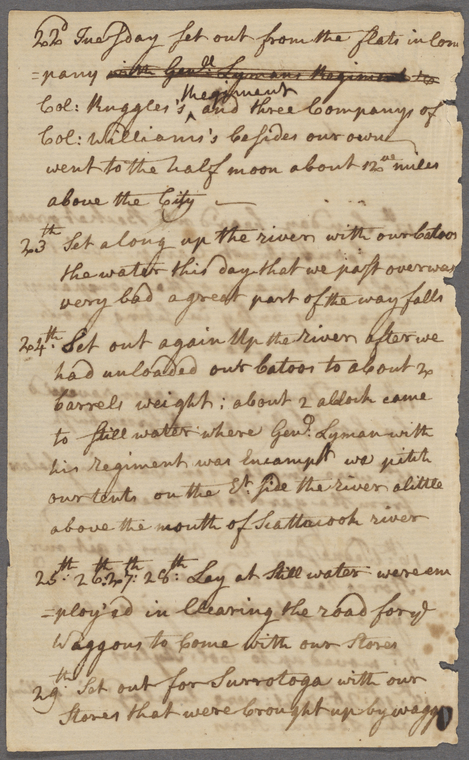 22d Tuesday set out from the flats in Com
=pany with Genll Lymans Regiment to
Regiment
Col: Ruggles's ^ and three Companys of
Col: Williams's besides our own
went to the half moon about 12 miles
above the City
23th Set along up the river with our batoos
the water this day that we past over was
very bad a great part of the way falls
24th: Set out again Up the River after we
had unloaded our batoos to about 20
barrels weight; about 2 aclock came
to Still water where Genll: Lyman with
his regiment was Encampt we pitch
our tents on the Et side the river alittle
above the mouth of Scattacook river
25th: 26th: 27th: 28th: Lay at Still water were em
=ploy'd in Clearing the road for ye
Waggons to Come with our Stores
29th Set out for Surrotoga with our
Stores that were brought up by wagg